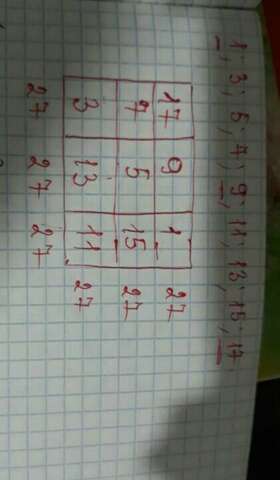 1; 3; 5; 7; 9; 11; 13; 15; 17
17 9 1 27
7 5 15 27
3 13 11 27
27 27 27